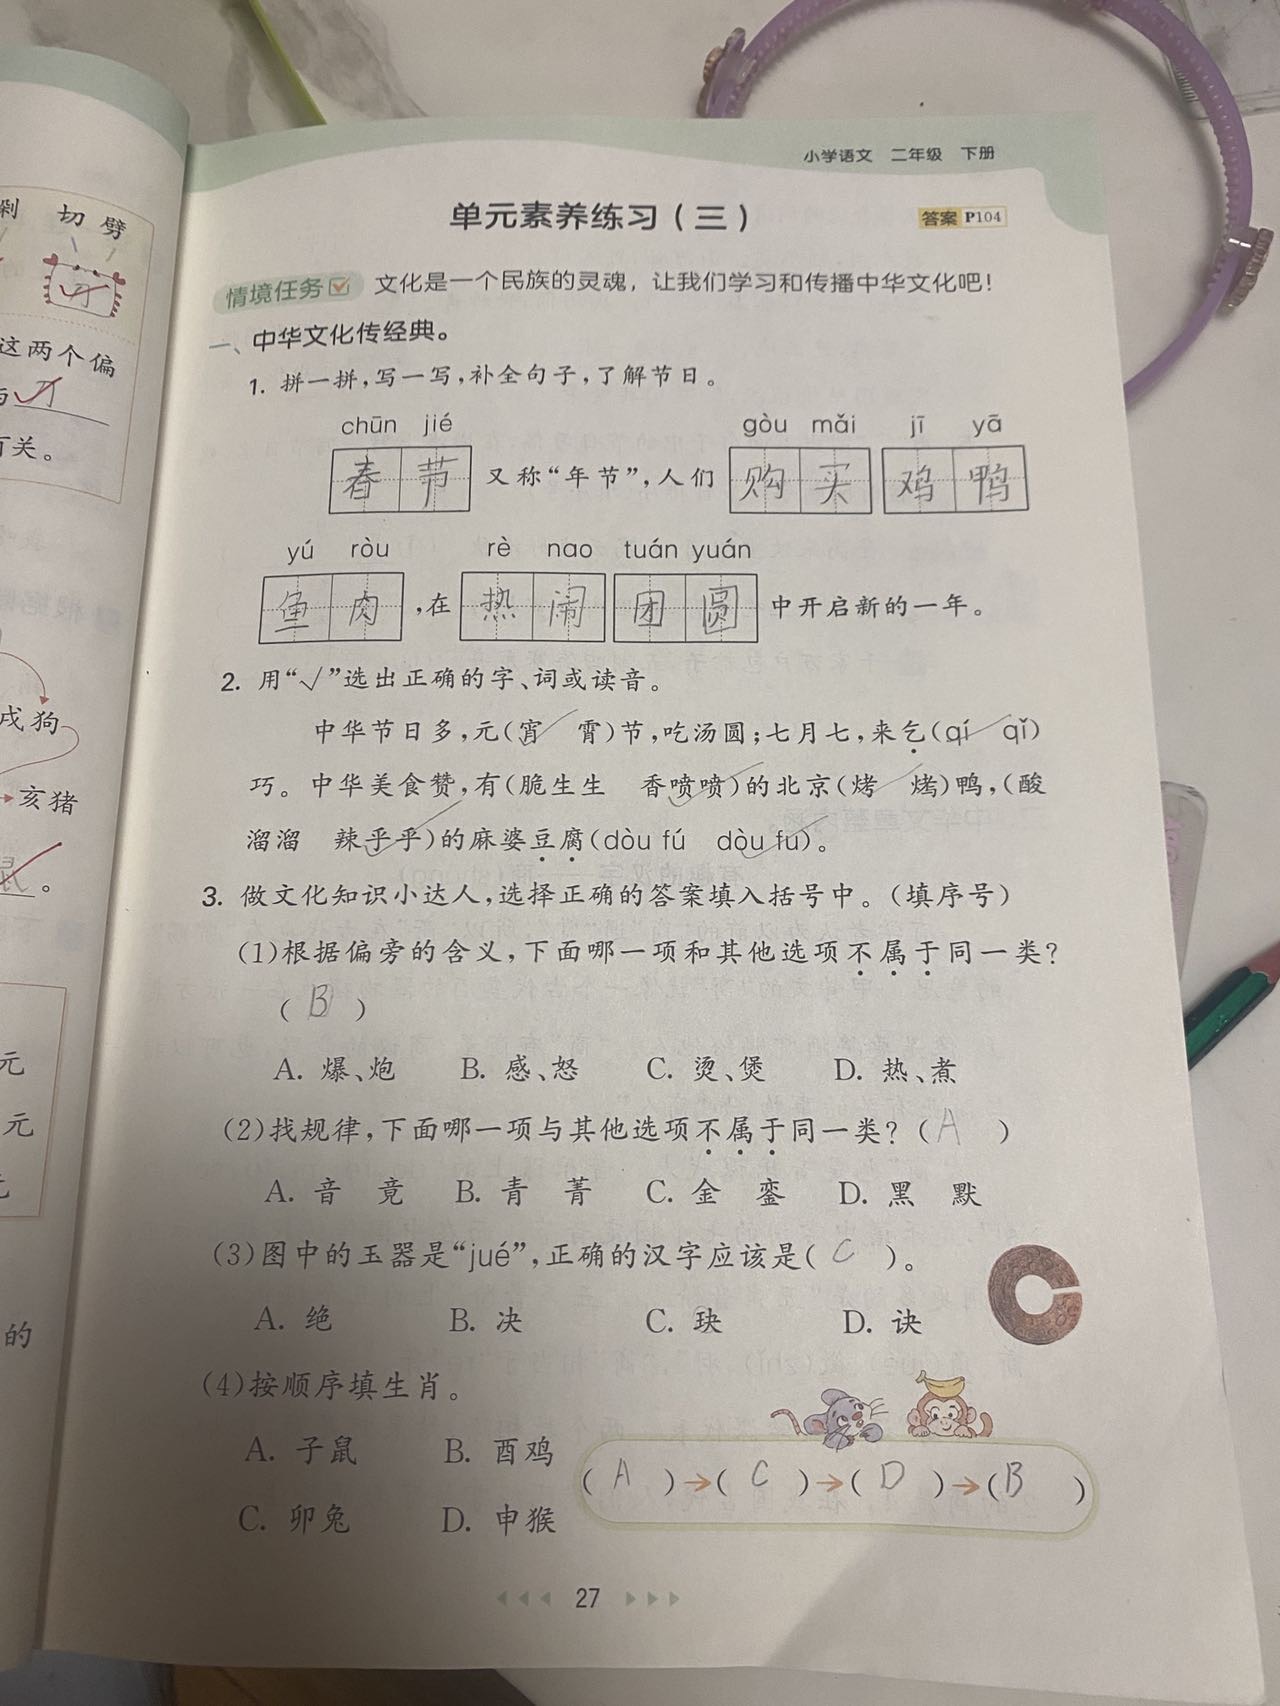 小学语文 二年级 下册
单元素养练习（三）
答案 P104
情境任务 文化是一个民族的灵魂，让我们学习和传播中华文化吧！
一、中华文化传经典。
1. 拼一拼，写一写，补全句子，了解节日。
chūn jié gòu mǎi jī yā
春节又称“年节”，人们购买鸡鸭
yú ròu rè nao tuán yuán
鱼肉，在热闹团圆中开启新的一年。
2. 用“√”选出正确的字、词或读音。
中华节日多，元（宵√ 霄）节，吃汤圆；七月七，来乞（qí√ qǐ）
巧。中华美食赞，有（脆生生 香喷喷√）的北京（烤√ 烤）鸭，（酸
溜溜 辣乎乎√）的麻婆豆腐（dòu fú dòu fu√）。
3. 做文化知识小达人，选择正确的答案填入括号中。（填序号）
（1）根据偏旁的含义，下面哪一项和其他选项不属于同一类？
（ B ）
A. 爆、炮 B. 感、怒 C. 烫、煲 D. 热、煮
（2）找规律，下面哪一项与其他选项不属于同一类？（ A ）
A. 音 竟 B. 青 菁 C. 金 銮 D. 黑 默
（3）图中的玉器是“jué”，正确的汉字应该是（ C ）。
A. 绝 B. 决 C. 玦 D. 诀
（4）按顺序填生肖。
A. 子鼠 B. 酉鸡
（ A ）→（ C ）→（ D ）→（ B ）
C. 卯兔 D. 申猴
27
剁 切 劈
刀
这两个偏
与 刀
有关。
戌狗
→亥猪
。
元
元
元
的